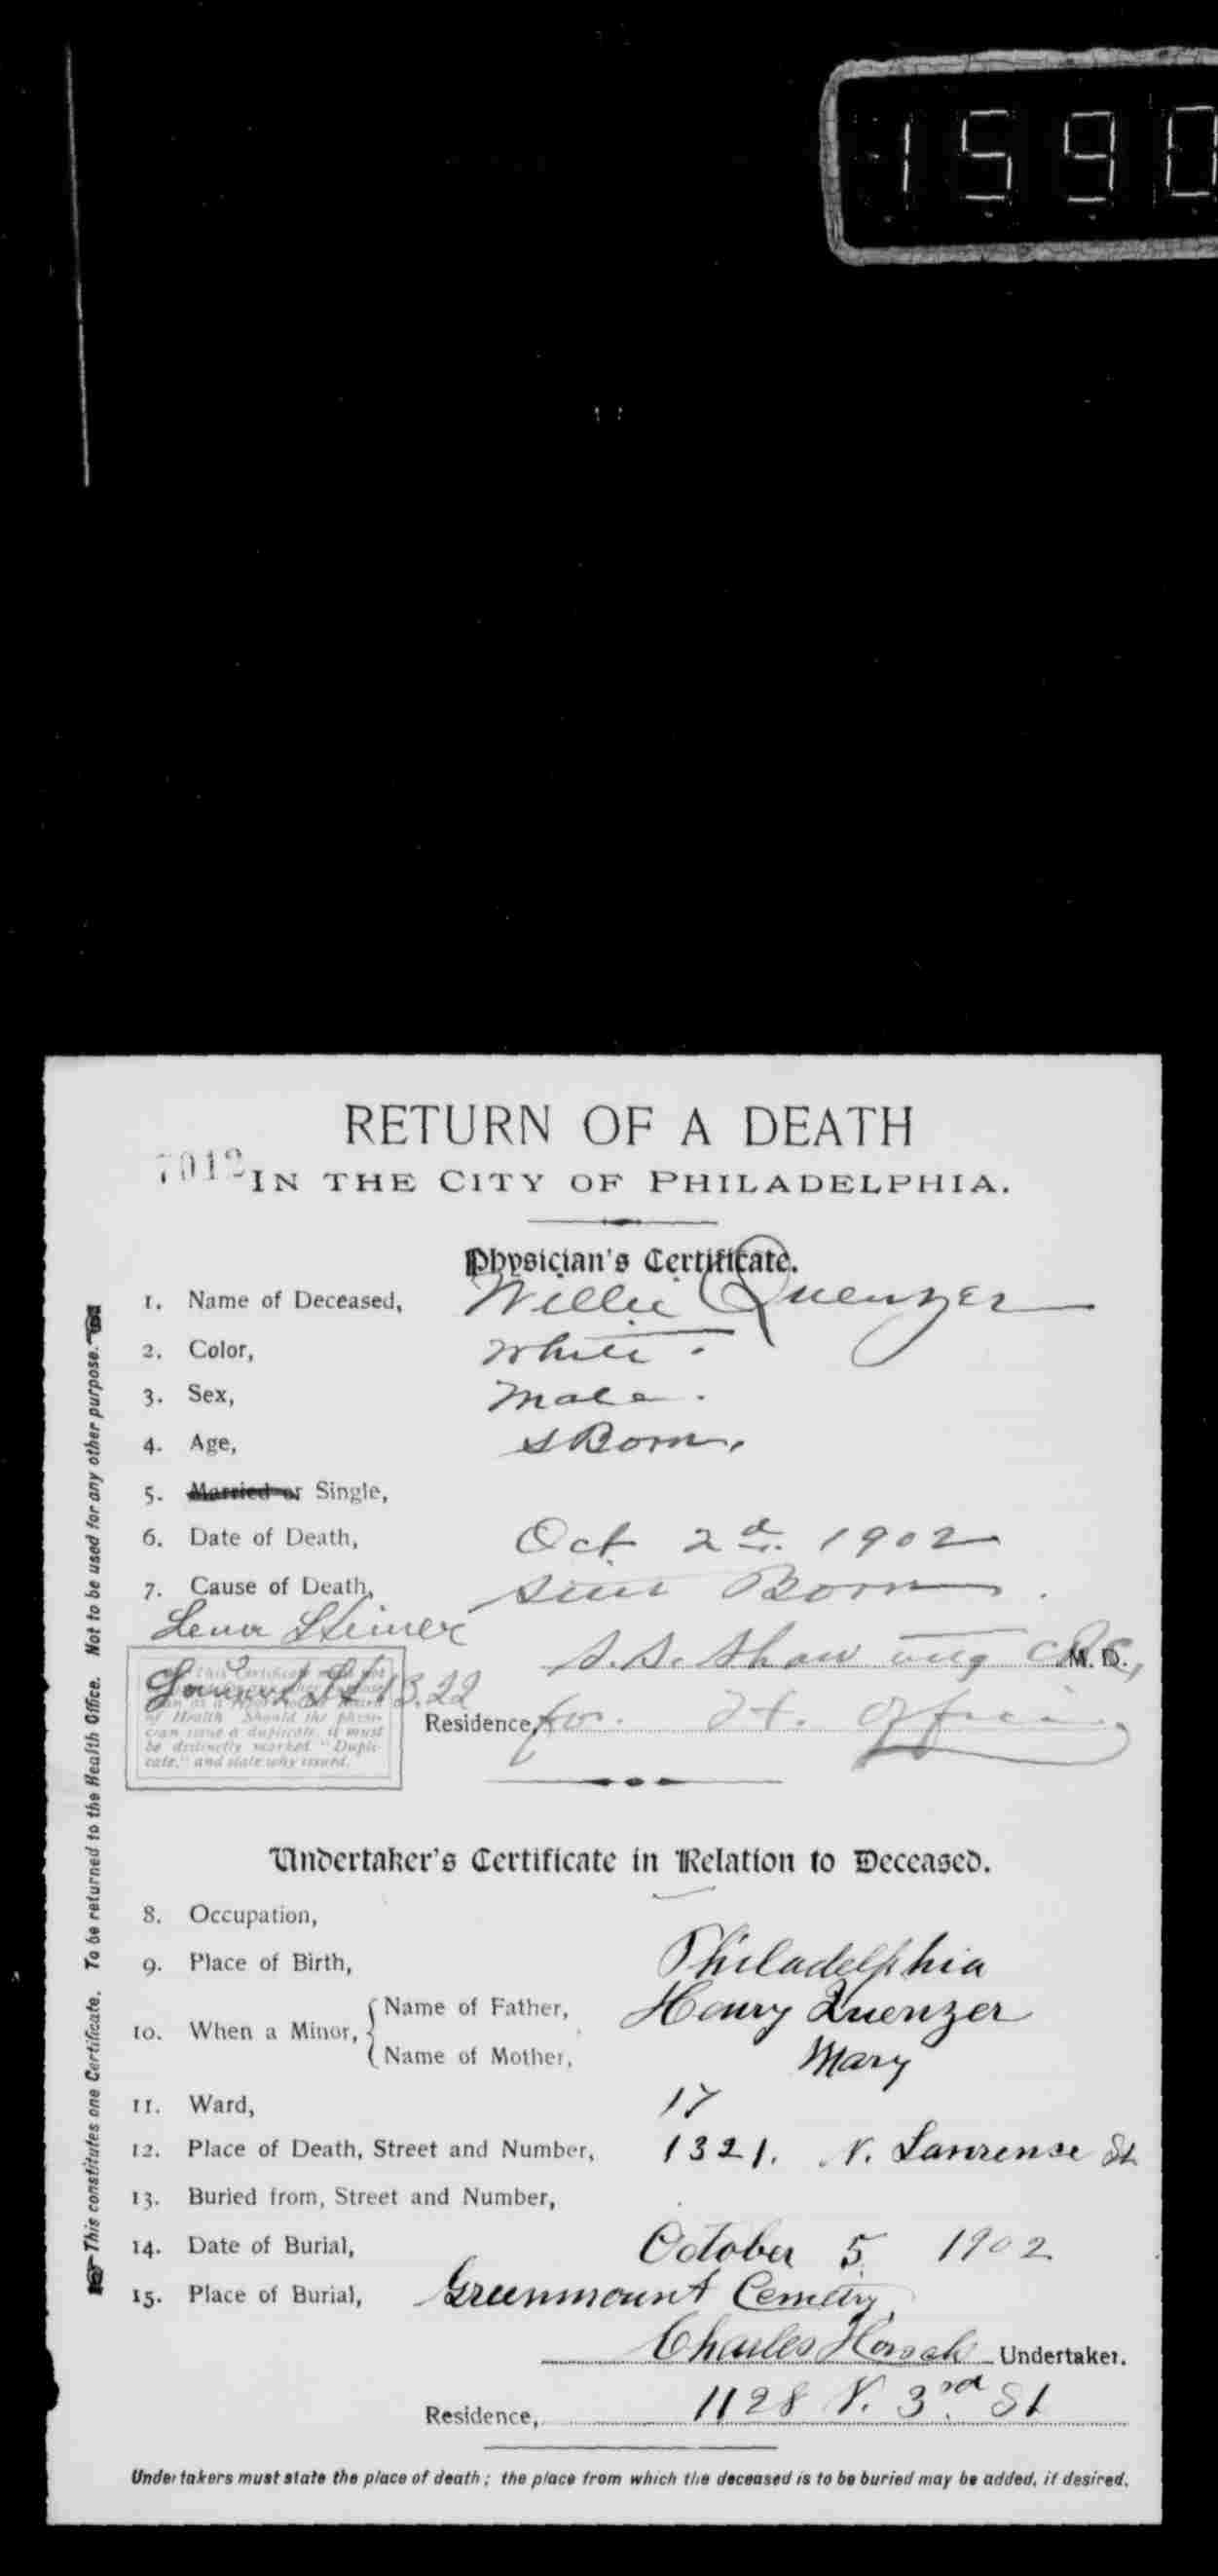 1590
RETURN OF A DEATH
7012
IN THE CITY OF PHILADELPHIA.
Physician's Certificate.
1. Name of Deceased, Willie Quenzer
2. Color, White.
3. Sex, Male.
4. Age, S Born.
5. Married or Single,
6. Date of Death, Oct 2d. 1902
7. Cause of Death, Still Born.
Lena Steiner
S. S. Shaw M. D.
St 1322
This Certificate must not
of Health Should the physi-
cian issue a duplicate, it must
be distinctly marked "Dupli-
cate," and state why issued.
Residence, for. H. Office
Undertaker's Certificate in Relation to Deceased.
8. Occupation,
9. Place of Birth, Philadelphia
10. When a Minor, { Name of Father, Henry Quenzer
Name of Mother, Mary
11. Ward, 17
12. Place of Death, Street and Number, 1321. N. Lawrense St
13. Buried from, Street and Number,
14. Date of Burial, October 5 1902
15. Place of Burial, Greenmount Cemetry
Charles Undertaker.
Residence, 1128 N. 3rd St
Undertakers must state the place of death; the place from which the deceased is to be buried may be added, if desired.
This constitutes one Certificate. To be returned to the Health Office. Not to be used for any other purpose.